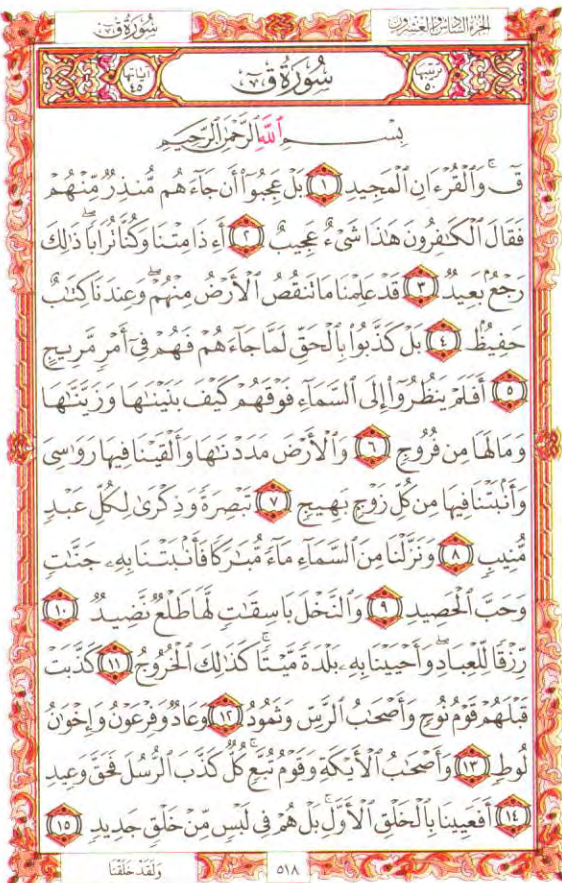 الجزء السادس والعشرون
سُورَةُ قٓ
ترتيبها ٥٠
سُورَةُ قٓ
آياتها ٤٥
بِسْمِ ٱللَّهِ ٱلرَّحْمَٰنِ ٱلرَّحِيمِ
قٓۚ وَٱلْقُرْءَانِ ٱلْمَجِيدِ ١ بَلْ عَجِبُوٓا۟ أَن جَآءَهُم مُّنذِرٌ مِّنْهُمْ
فَقَالَ ٱلْكَٰفِرُونَ هَٰذَا شَىْءٌ عَجِيبٌ ٢ أَءِذَا مِتْنَا وَكُنَّا تُرَابًاۖ ذَٰلِكَ
رَجْعٌۢ بَعِيدٌ ٣ قَدْ عَلِمْنَا مَا تَنقُصُ ٱلْأَرْضُ مِنْهُمْۖ وَعِندَنَا كِتَٰبٌ
حَفِيظٌۢ ٤ بَلْ كَذَّبُوا۟ بِٱلْحَقِّ لَمَّا جَآءَهُمْ فَهُمْ فِىٓ أَمْرٍ مَّرِيجٍ
٥ أَفَلَمْ يَنظُرُوٓا۟ إِلَى ٱلسَّمَآءِ فَوْقَهُمْ كَيْفَ بَنَيْنَٰهَا وَزَيَّنَّٰهَا
وَمَا لَهَا مِن فُرُوجٍ ٦ وَٱلْأَرْضَ مَدَدْنَٰهَا وَأَلْقَيْنَا فِيهَا رَوَٰسِىَ
وَأَنۢبَتْنَا فِيهَا مِن كُلِّ زَوْجٍۭ بَهِيجٍ ٧ تَبْصِرَةً وَذِكْرَىٰ لِكُلِّ عَبْدٍ
مُّنِيبٍ ٨ وَنَزَّلْنَا مِنَ ٱلسَّمَآءِ مَآءً مُّبَٰرَكًا فَأَنۢبَتْنَا بِهِۦ جَنَّٰتٍ
وَحَبَّ ٱلْحَصِيدِ ٩ وَٱلنَّخْلَ بَاسِقَٰتٍ لَّهَا طَلْعٌ نَّضِيدٌ ١٠
رِّزْقًا لِّلْعِبَادِۖ وَأَحْيَيْنَا بِهِۦ بَلْدَةً مَّيْتًاۚ كَذَٰلِكَ ٱلْخُرُوجُ ١١ كَذَّبَتْ
قَبْلَهُمْ قَوْمُ نُوحٍ وَأَصْحَٰبُ ٱلرَّسِّ وَثَمُودُ ١٢ وَعَادٌ وَفِرْعَوْنُ وَإِخْوَٰنُ
لُوطٍ ١٣ وَأَصْحَٰبُ ٱلْأَيْكَةِ وَقَوْمُ تُبَّعٍۚ كُلٌّ كَذَّبَ ٱلرُّسُلَ فَحَقَّ وَعِيدِ
١٤ أَفَعَيِينَا بِٱلْخَلْقِ ٱلْأَوَّلِۚ بَلْ هُمْ فِى لَبْسٍ مِّنْ خَلْقٍ جَدِيدٍ ١٥
٥١٨
وَلَقَدْ خَلَقْنَا